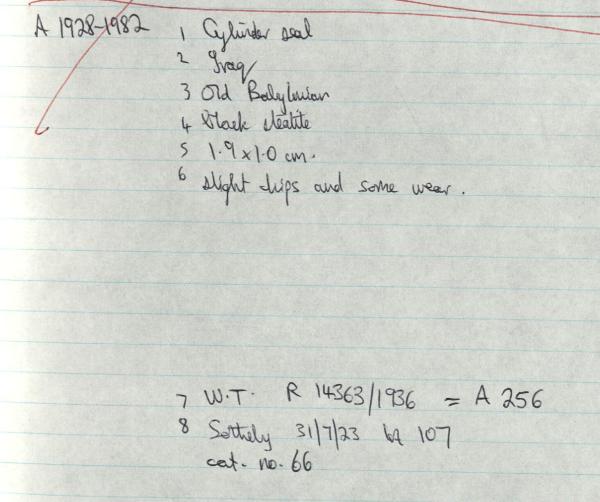 A 1928-1982 1 Cylinder seal
2 Iraq
3 Old Babylonian
4 black steatite
5 1.9 x 1.0 cm.
6 slight chips and some wear.
7 W.T. R 14363/1936 = A 256
8 Sotheby 31/7/23 lot 107
cat. no. 66